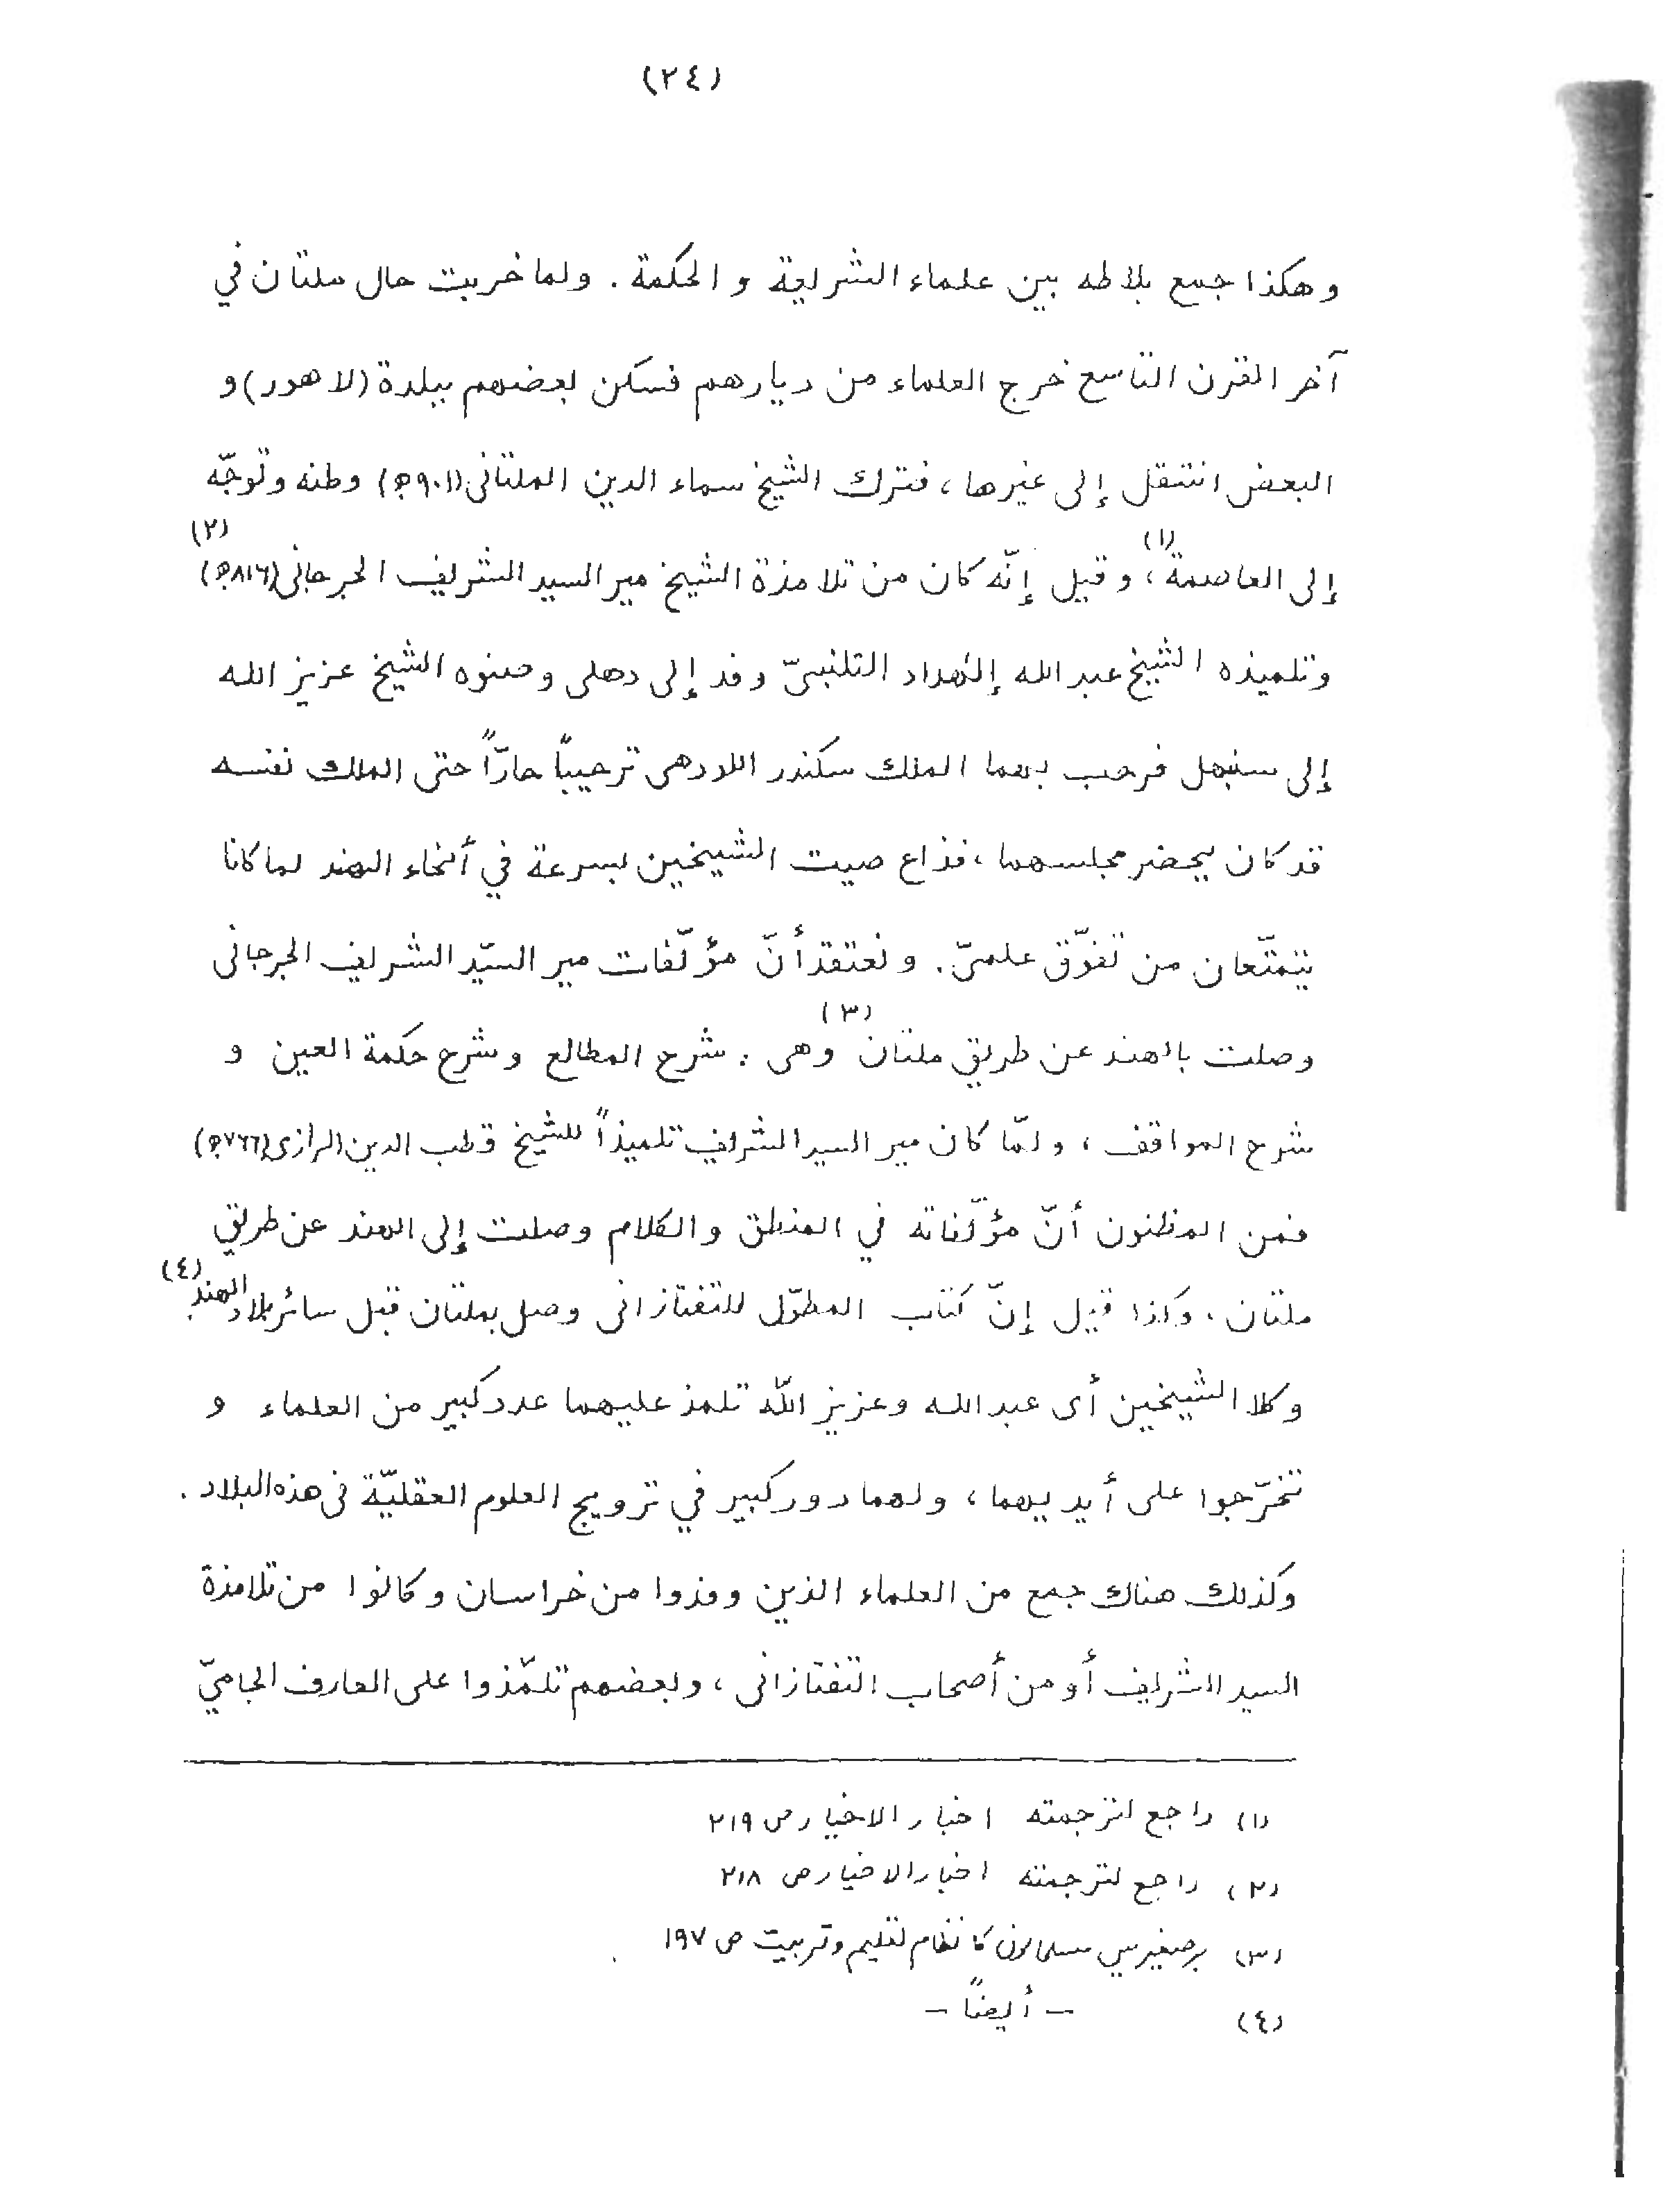 (٢٤)
وهكذا جمع بلاطه بين علماء الشريعة و الحكمة . ولما خربت حال ملتان في
آخر القرن التاسع خرج العلماء من ديارهم فسكن بعضهم ببلدة (لاهور) و
البعض انتقل إلى غيرها ، فترك الشيخ سماء الدين الملتانى (٩٠١ھ) وطنه وتوجّه
إلى العاصمة (١) ، وقيل إنّه كان من تلامذة الشيخ مير السيد الشريف الجرجانى (٨١٦ھ) (٢)
وتلميذه الشيخ عبد الله إلٰهداد التلنبىّ وفد إلى دهلى وصنوه الشيخ عزيز الله
إلى سنبهل فرحب بهما الملك سكندر اللودهى ترحيباً حارّاً حتى الملك نفسه
قد كان يحضر مجلسهما ، فذاع صيت الشيخين بسرعة في أنحاء الهند لما كانا
يتمتّعان من تفوّق علمىّ . ونعتقد أنّ مؤلّفات مير السيّد الشريف الجرجانى
وصلت بالهند عن طريق ملتان (٣) وهى : شرح المطالع وشرح حكمة العين و
شرح المواقف ، ولمّا كان مير السيد الشريف تلميذاً للشيخ قطب الدين الرازى (٧٦٦ھ)
فمن المظنون أنّ مؤلّفاته في المنطق والكلام وصلت إلى الهند عن طريق
ملتان . وكذا قيل إنّ كتاب المطوّل للتفتازانى وصل بملتان قبل سائر بلاد الهند (٤) .
وكلا الشيخين أى عبد الله وعزيز اللّه تلمذ عليهما عدد كبير من العلماء و
تخرّجوا على أيديهما ، ولهما دور كبير في ترويج العلوم العقليّة فى هذه البلاد .
وكذلك هناك جمع من العلماء الذين وفدوا من خراسان وكانوا من تلامذة
السيد الشريف أو من أصحاب التفتازانى ، وبعضهم تلمّذوا على العارف الجامىّ
(١) راجع لترجمته اخبار الاخيار ص ٢١٩
(٢) راجع لترجمته اخبار الاخيار ص ٢١٨
(٣) برصغیر میں مسلمانوں کا نظام تعلیم وتربیت ص ١٩٧
(٤) - أيضاً -